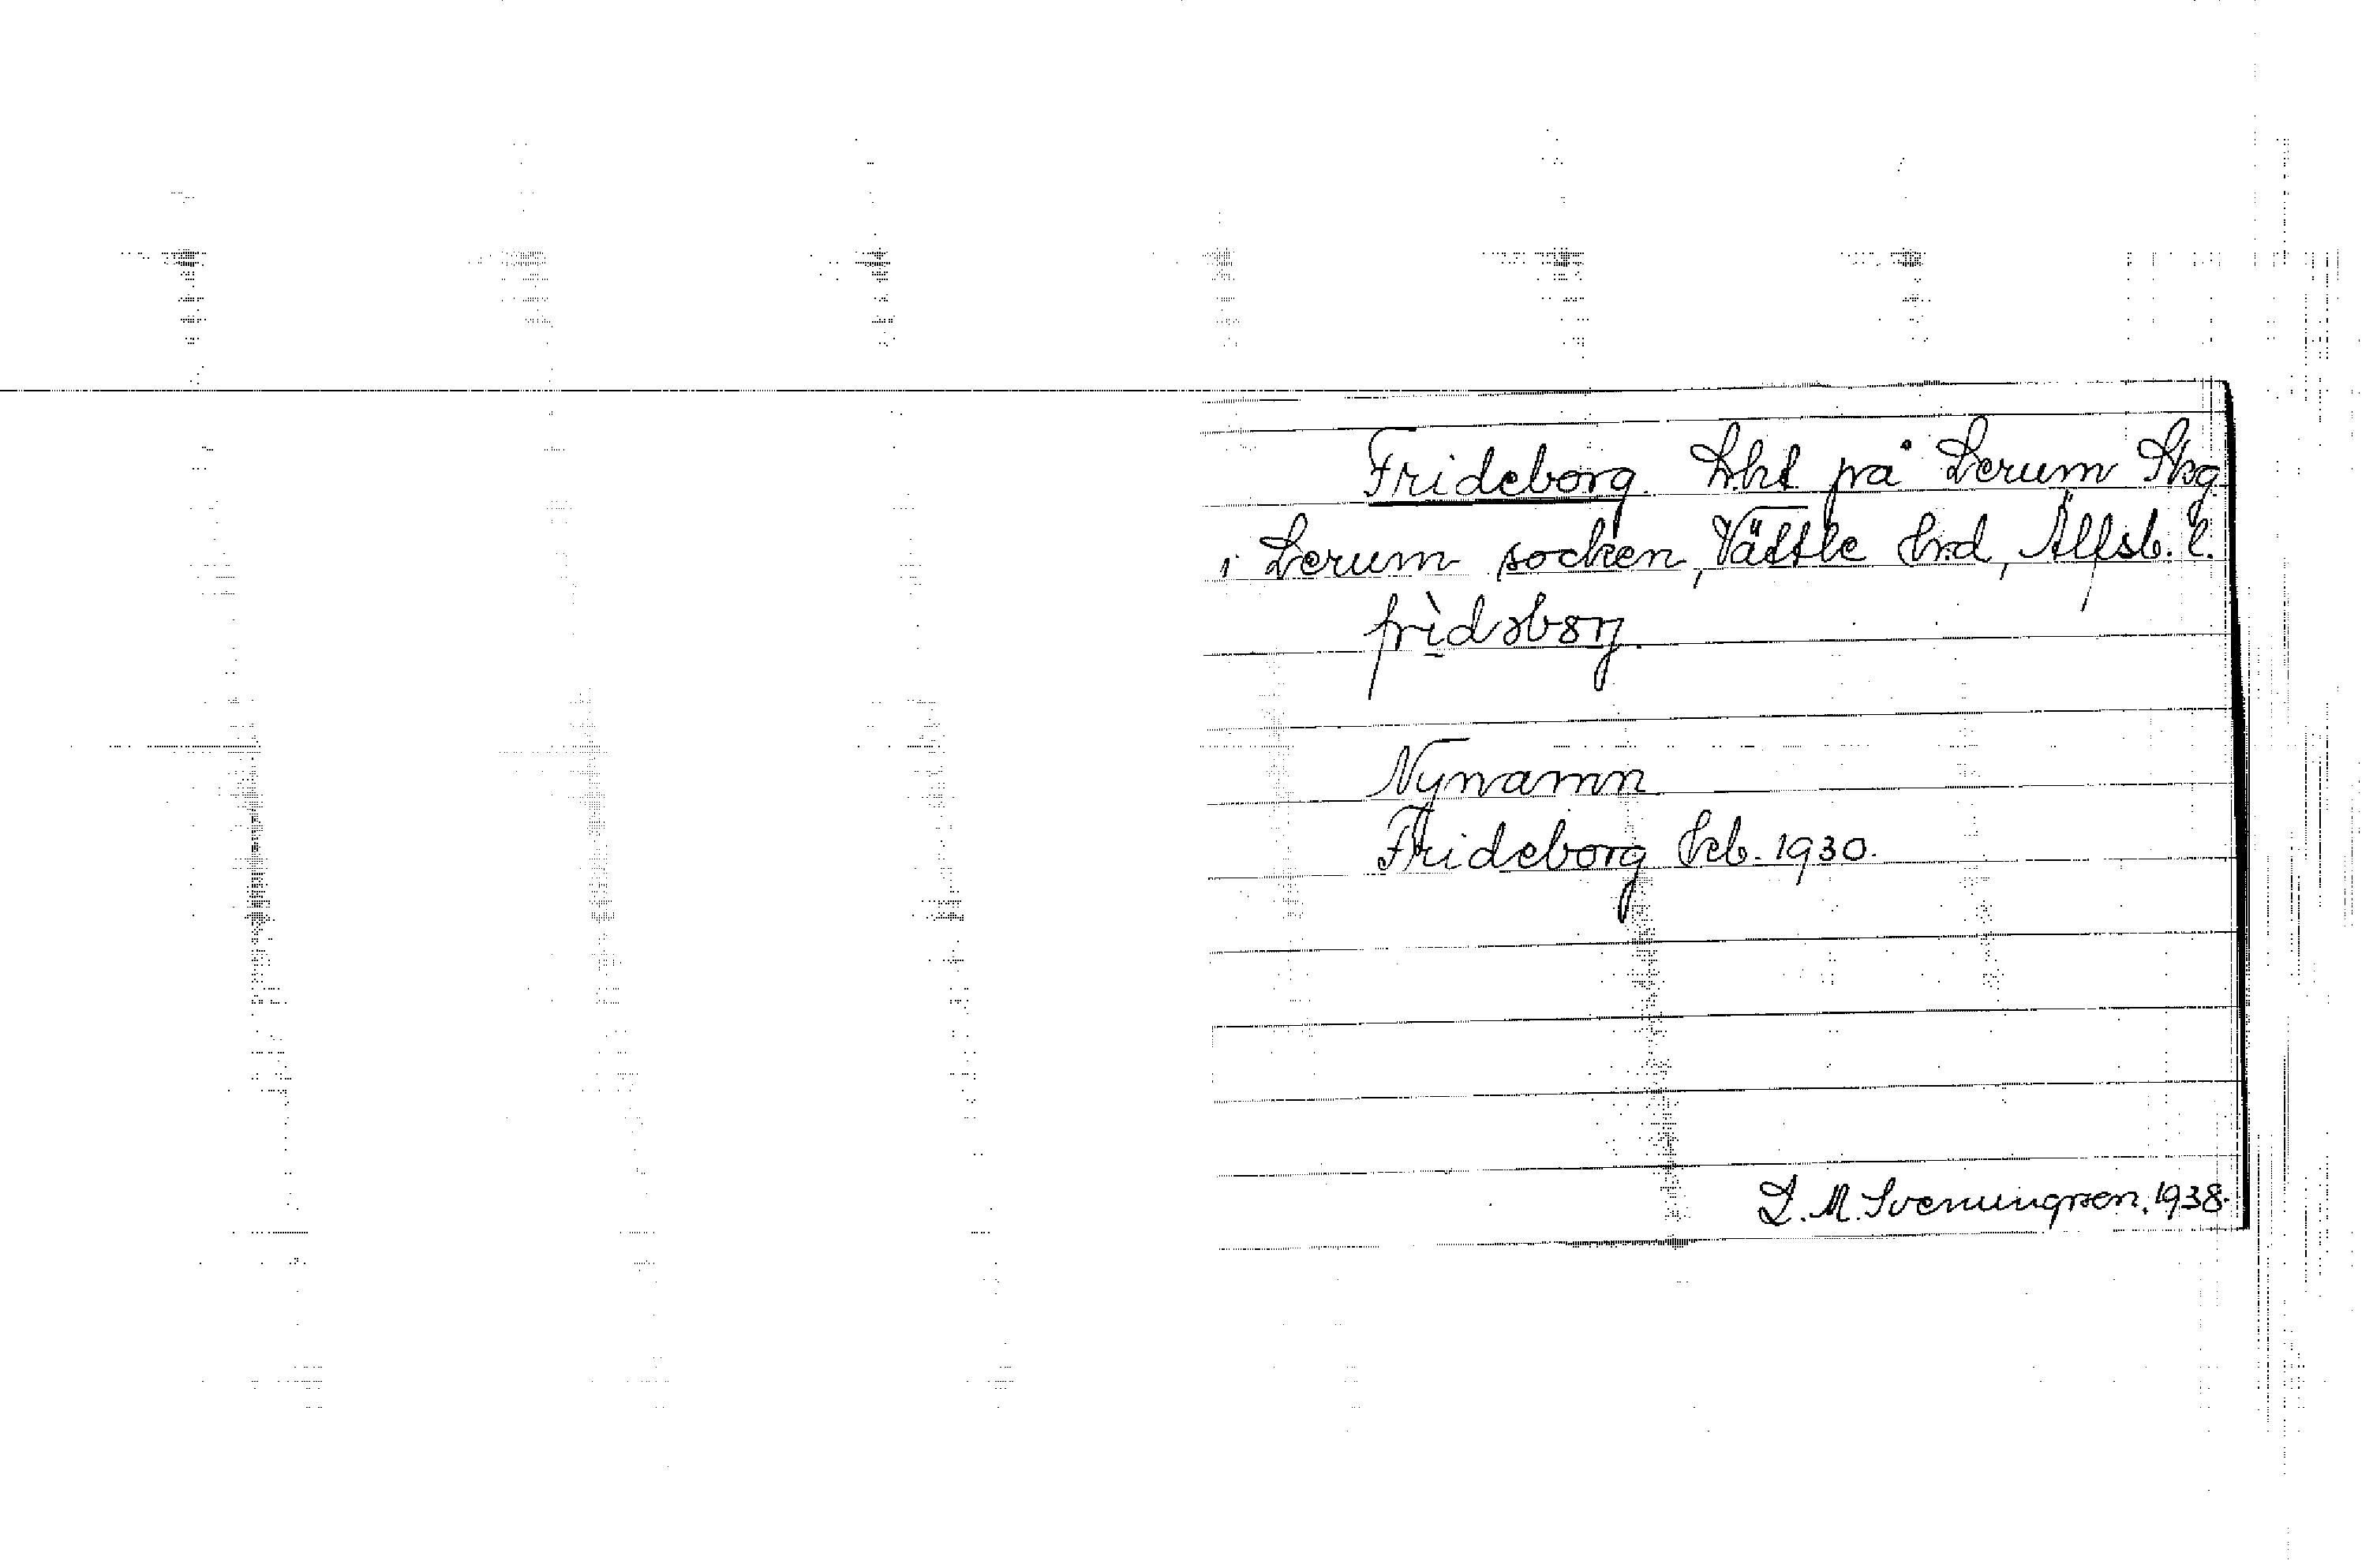 Frideborg. Lht på Lerum Stsg
i Lerum socken, Vättle hrd, Älfsb. l.
frìdəbɔrj.
Nynamn
Frideborg Jreb. 1930.
D. M. Svenungsson. 1938.